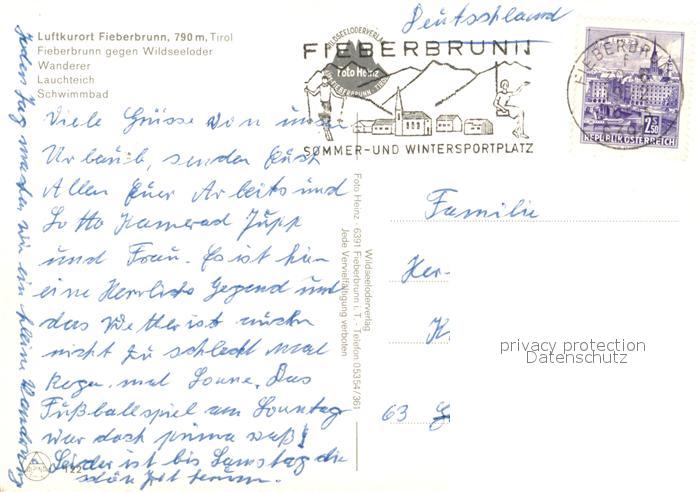 Luftkurort Fieberbrunn, 790 m, Tirol
Fieberbrunn gegen Wildseeloder
Wanderer
Lauchteich
Schwimmbad
Viele Grüsse von unse
Urlaub, senden Euch
Allen Euer Arbeits und
Lotto Kamerad Jupp
und Frau. Es ist hir
eine Herrliche Gegend und
das Wetter ist auch
nicht zu schlecht mal
Regen mal Sonne. Das
Fußballspiel am Sonntag
war doch prima was!
Leider ist bis Samstag die
schön Zeit herum.
Jeden Tag machen wir ein kleine Wanderung
122
Wildseeloderverlag
Foto Heinz · 6391 Fieberbrunn i. T. - Telefon 05354/361
Jede Vervielfältigung verboten
Deutschland
FIEBERBRUNN
WILDSEELODERVERLAG
Foto Heinz
SOMMER-UND WINTERSPORTPLATZ
FIEBERBRUNN
2.50
REPUBLIK ÖSTERREICH
Familie
Her-
K
63
privacy protection
Datenschutz